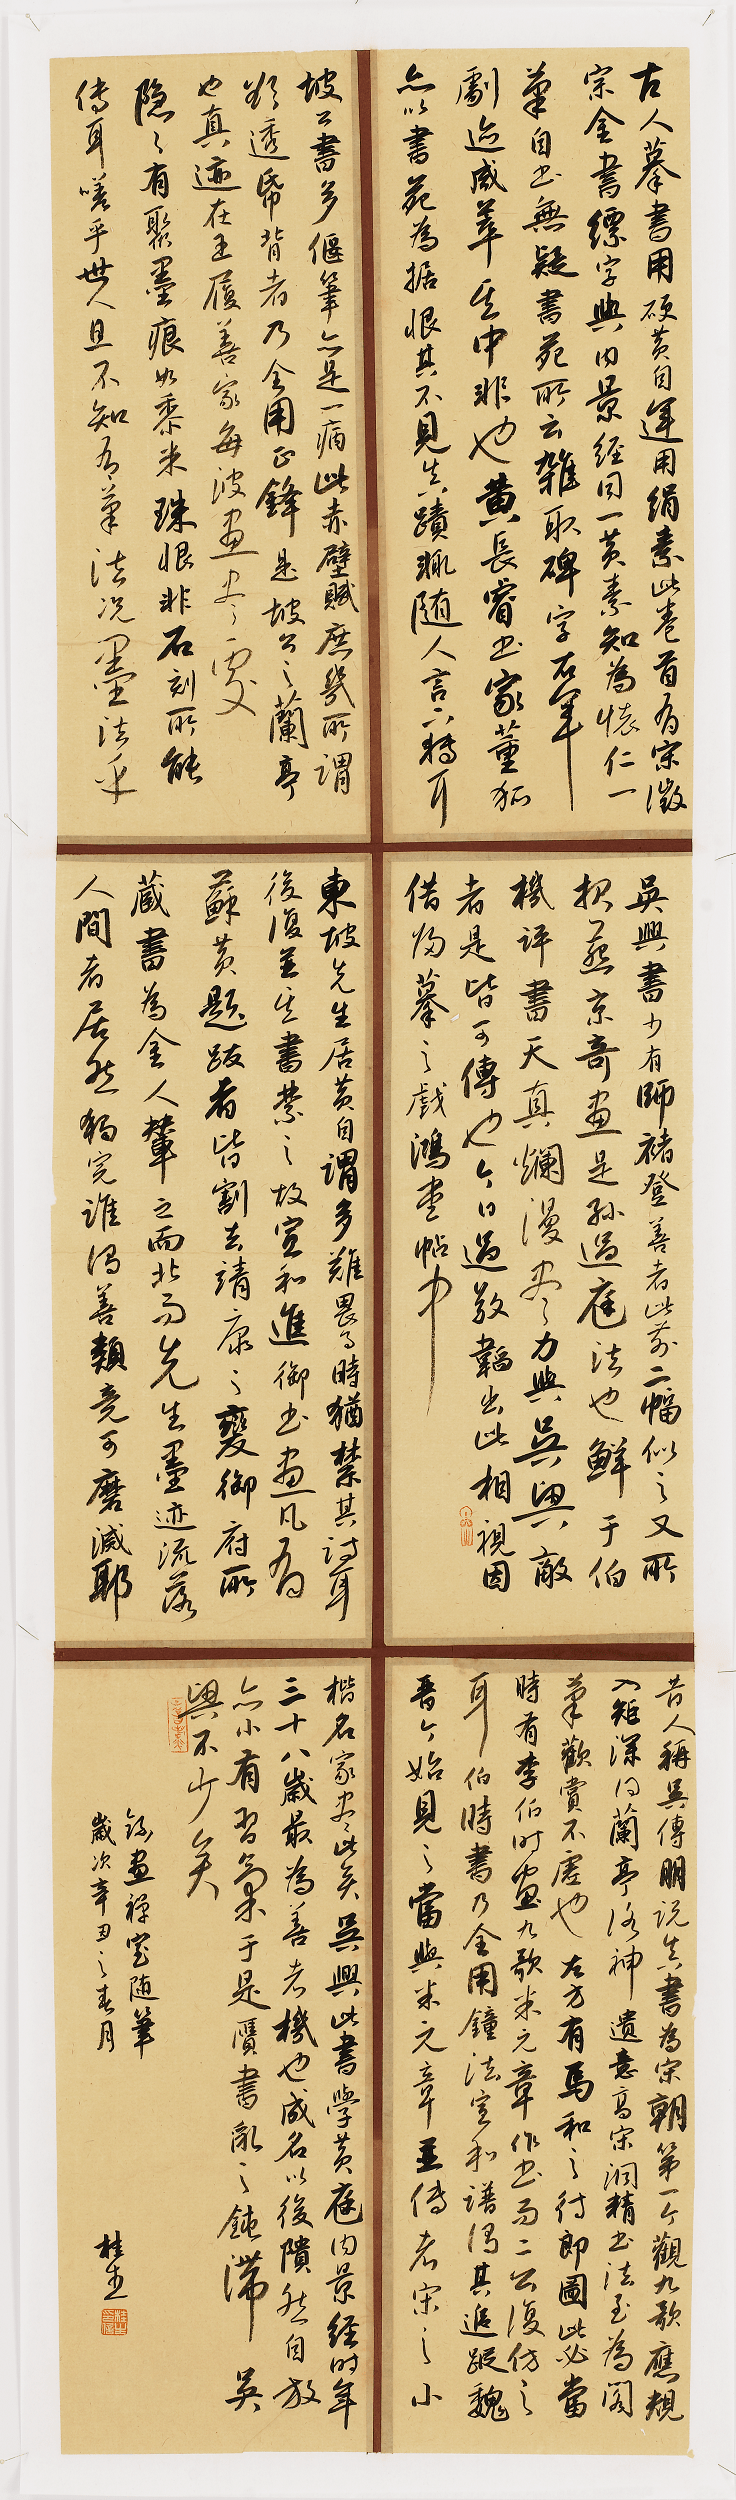 古人摹書用硬黄自運用絹素此卷首有宋徽
宗金書縹字與内景经同一黄素知為懷仁一
筆自书無疑書苑所云雜取碑字右軍
劇迹咸萃其中非也黄長睿书家董狐
亦以書苑為据恨其不見真蹟輒随人言下轉耳
坡公書多偃筆亦是一病此赤壁賦庶幾所謂
欲透紙背者乃全用正鋒是坡公之蘭亭
也真迹在王履善家每波畫尽處
隐隐有聚墨痕如黍米珠恨非石刻所能
傳耳嗟乎世人且不知有筆法况墨法乎
吳興書少有師褚登善者此前二幅似之又所
报燕京奇畫是孫過庭法也鮮于伯
機評書天真爛漫尽之力與吳興敵
者是皆可傳也今日過敬韜出此相視因
借歸摹之戲鴻堂帖中
東坡先生居黄自謂多難畏事時猶禁其詩耳
後復並其書禁之故宣和進御书畫凡有
蘇黄題跋者皆割去靖康之變御府所
藏書為金人輦之而北而先生墨迹流落
人間者居然獨完誰谓善類竟可磨滅耶
昔人稱吳傅朋説真書為宋朝第一今觀九歌應規
入矩深得蘭亭洛神遺意高宗洞精书法至為閣
筆歡賞不虚也右方有馬和之侍郎圖此必當
時有李伯时畫九歌米元章作书而二公復仿之
耳伯時書乃全用鍾法宣和譜谓其追蹤魏
晋今始見之當與米元章並傳者宋之小
楷名家尽此矣吳興此書學黄庭内景经时年
三十八歲最為善者機也成名以後隤然自放
亦小有習氣于是贋書乱之鈍滞吳
興不少矣
錄畫禪室随筆
歲次辛丑之春月